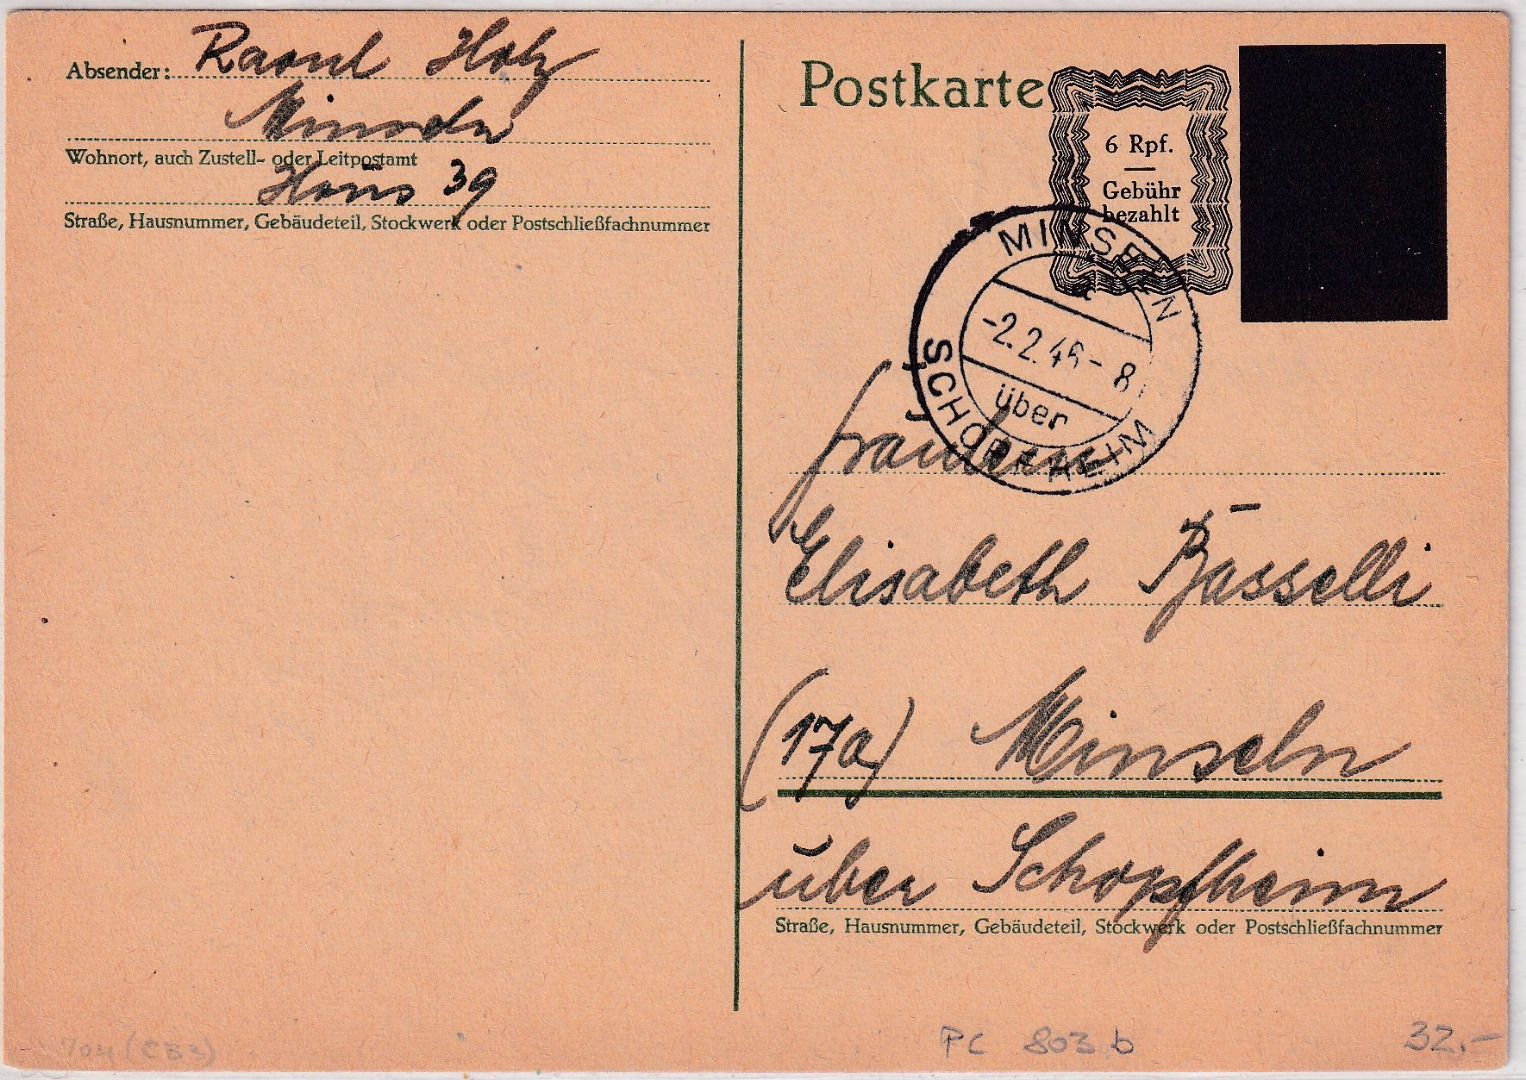 Absender: Raoul Holz
Minseln
Wohnort, auch Zustell- oder Leitpostamt
Haus 39
Straße, Hausnummer, Gebäudeteil, Stockwerk oder Postschließfachnummer
Postkarte
6 Rpf.
Gebühr
bezahlt
MINSELN
a
-2.2.46-8
über
SCHOPFHEIM
Fräulein
Elisabeth Basselli
(17a) Minseln
über Schopfheim
Straße, Hausnummer, Gebäudeteil, Stockwerk oder Postschließfachnummer
PC 803 b
32.-